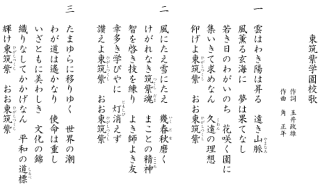 東筑紫学園校歌
作詞 玉井政雄
作曲 角 正年
一
雲はわき陽は昇る 遠き山脈
風薫る玄海に 夢は果てなし
若き日のわがいのち 花咲く園に
集いきて求めなん 久遠の理想
仰げよ東筑紫 おお東筑紫
二
風にたえ雪にたえ 幾春秋磨く
けがれなき筑紫魂 まことの精神
智を啓き技を練り よき師よき友
幸多き学びやに 灯消えず
讃えよ東筑紫 おお東筑紫
三
たまゆらに移りゆく 世界の潮
わが道は遙かなり 使命は重し
いざともに美わしき 文化の錦
織りなしてかかげなん 平和の道標
輝け東筑紫 おお東筑紫